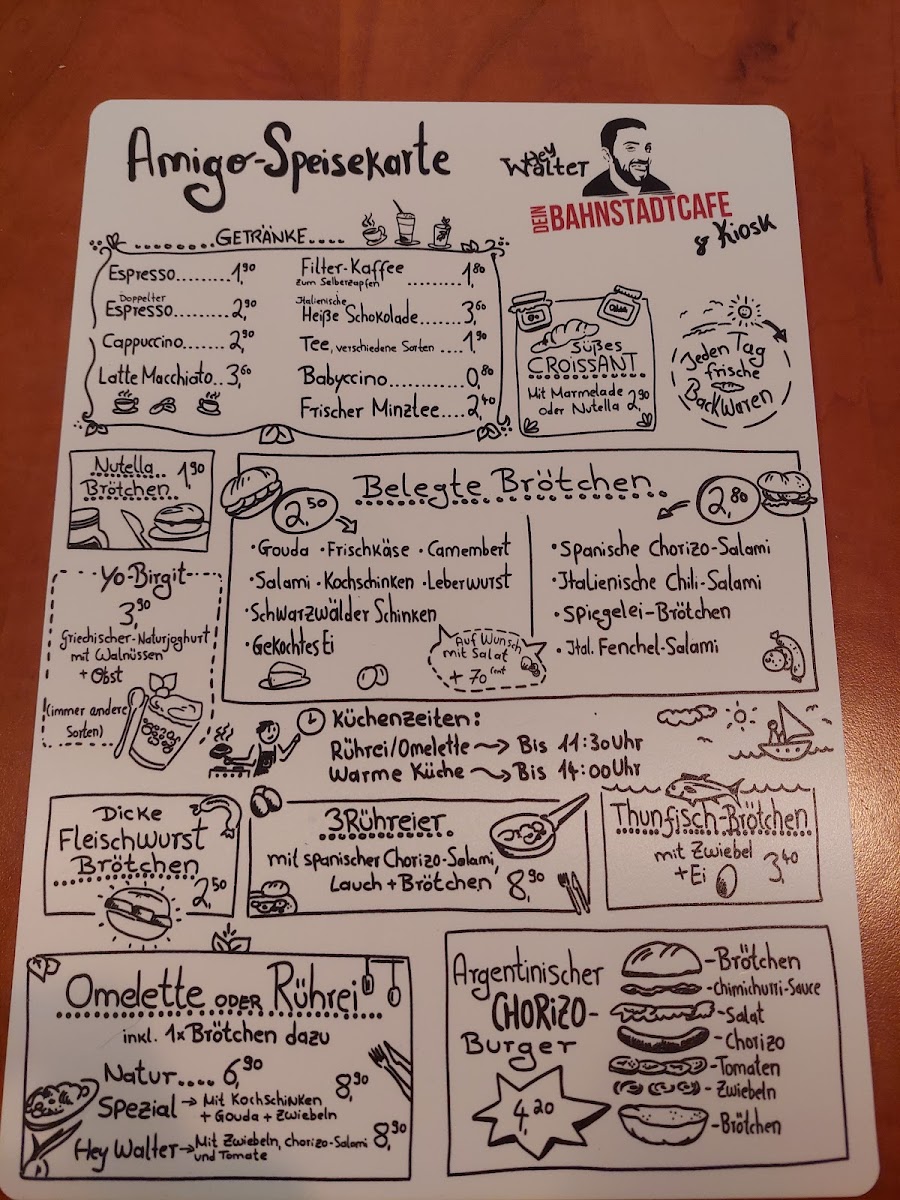 Amigo-Speisekarte
Hey
Walter
DEIN BAHNSTADTCAFE
& Kiosk
GETRÄNKE....
Espresso........1,90
Doppelter
Espresso........2,90
Cappuccino......2,90
Latte Macchiato..3,60
Filter-Kaffee
zum Selberzapfen .........1,80
Italienische
Heiße Schokolade.......3,60
Tee, verschiedene Sorten ....1,90
Babyccino...........0,80
Frischer Minztee....2,40
Süßes
CROISSANT
Mit Marmelade
oder Nutella 2,90
Jeden Tag
frische
Backwaren
Nutella 1,90
Brötchen
Belegte Brötchen
2,50
• Gouda • Frischkäse • Camembert
• Salami • Kochschinken • Leberwurst
• Schwarzwälder Schinken
• Gekochtes Ei
Auf Wunsch
mit Salat
+ 70 Cent
2,80
• Spanische Chorizo-Salami
• Italienische Chili-Salami
• Spiegelei-Brötchen
• Ital. Fenchel-Salami
Yo-Birgit
3,90
Griechischer-Naturjoghurt
mit Walnüssen
+ Obst
(immer andere
Sorten)
Küchenzeiten:
Rührei/Omelette → Bis 11:30 Uhr
Warme Küche → Bis 14:00 Uhr
Dicke
Fleischwurst
Brötchen
2,50
3 Rühreier
mit spanischer Chorizo-Salami,
Lauch + Brötchen 8,90
Thunfisch-Brötchen
mit Zwiebel
+ Ei 3,40
Omelette ODER Rührei
inkl. 1x Brötchen dazu
Natur.... 6,90
Spezial → Mit Kochschinken 8,90
+ Gouda + Zwiebeln
Hey Walter → Mit Zwiebeln, chorizo-Salami 8,90
und Tomate
Argentinischer
CHORIZO-
Burger
4,20
-Brötchen
-Chimichurri-Sauce
-Salat
-Chorizo
-Tomaten
-Zwiebeln
-Brötchen